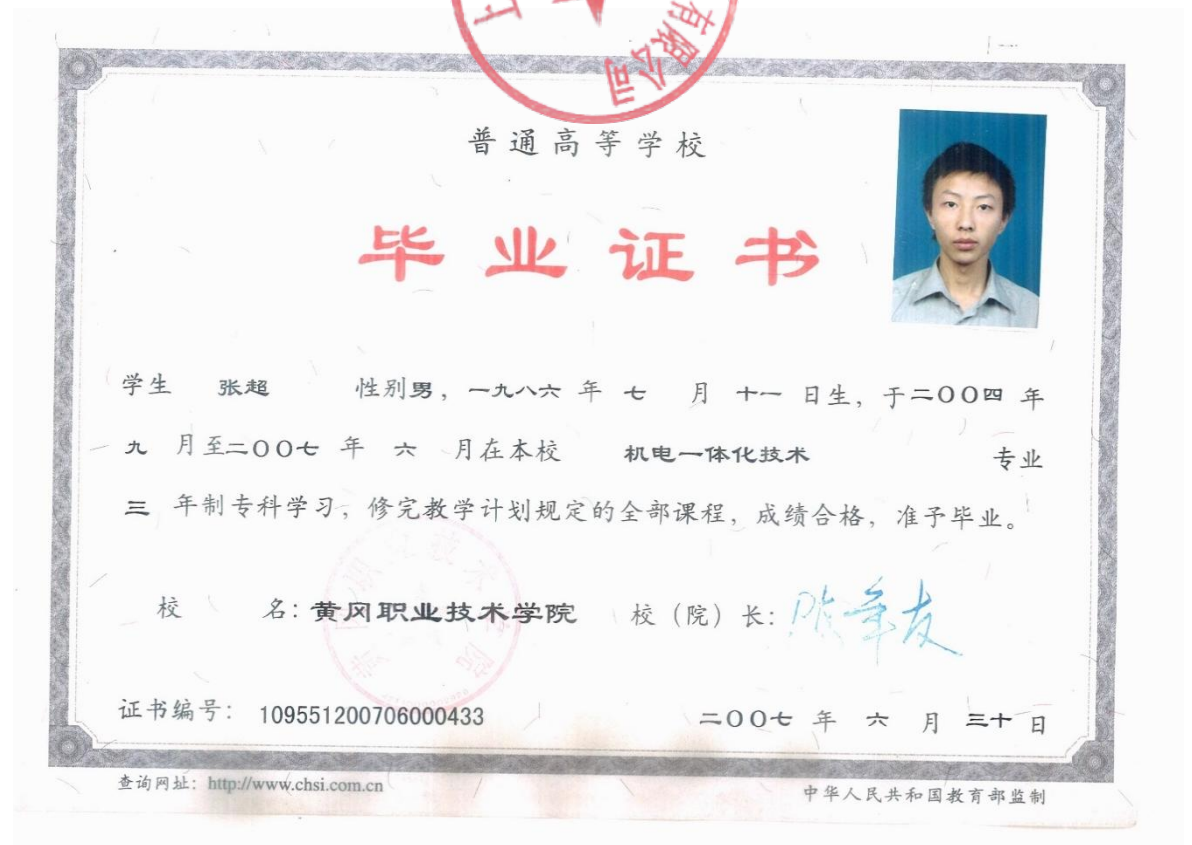 上
有限公司
普通高等学校
毕业证书
学生 张超 性别男，一九八六年七月十一日生，于二OO四年
九月至二OO七年六月在本校 机电一体化技术 专业
三年制专科学习，修完教学计划规定的全部课程，成绩合格，准予毕业。
校 名：黄冈职业技术学院 校（院）长：陈年友
证书编号：109551200706000433 二OO七年六月三十日
查询网址：http://www.chsi.com.cn 中华人民共和国教育部监制